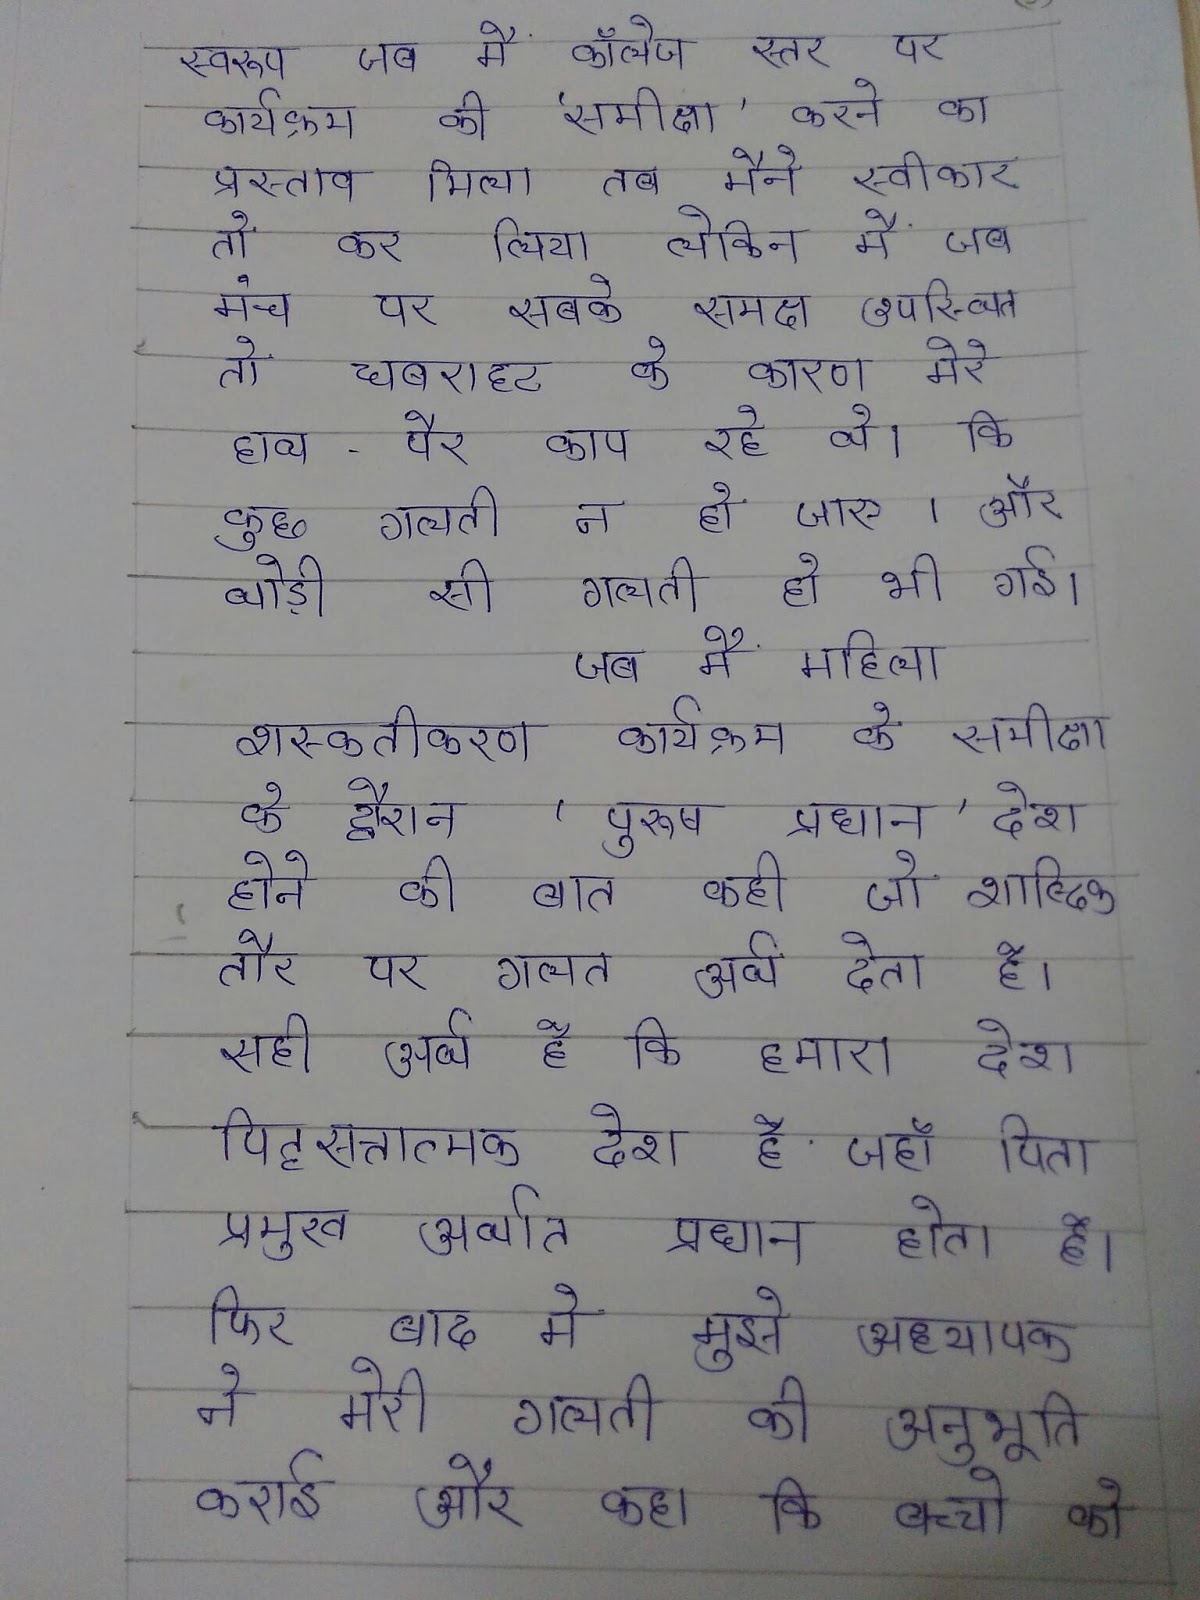 स्वरूप जब मैं कॉलेज स्तर पर
कार्यक्रम की 'समीक्षा' करने का
प्रस्ताव मिला तब मैने स्वीकार
तो कर लिया लेकिन मैं जब
मंच पर सबके समक्ष उपस्थित
तो घबराहट के कारण मेरे
हाथ - पैर काप रहे थे। कि
कुछ गलती न हो जाए । और
थोड़ी सी गलती हो भी गई।
जब मैं महिला
शस्कतीकरण कार्यक्रम के समीक्षा
के दौरान ' पुरूष प्रधान ' देश
होने की बात कही जो शाब्दिक
तौर पर गलत अर्थ देता है।
सही अर्थ है कि हमारा देश
पितृसत्तात्मक देश है जहाँ पिता
प्रमुख अर्थात प्रधान होता है।
फिर बाद में मुझे अध्यापक
ने मेरी गलती की अनुभूति
कराई और कहा कि बच्चो को